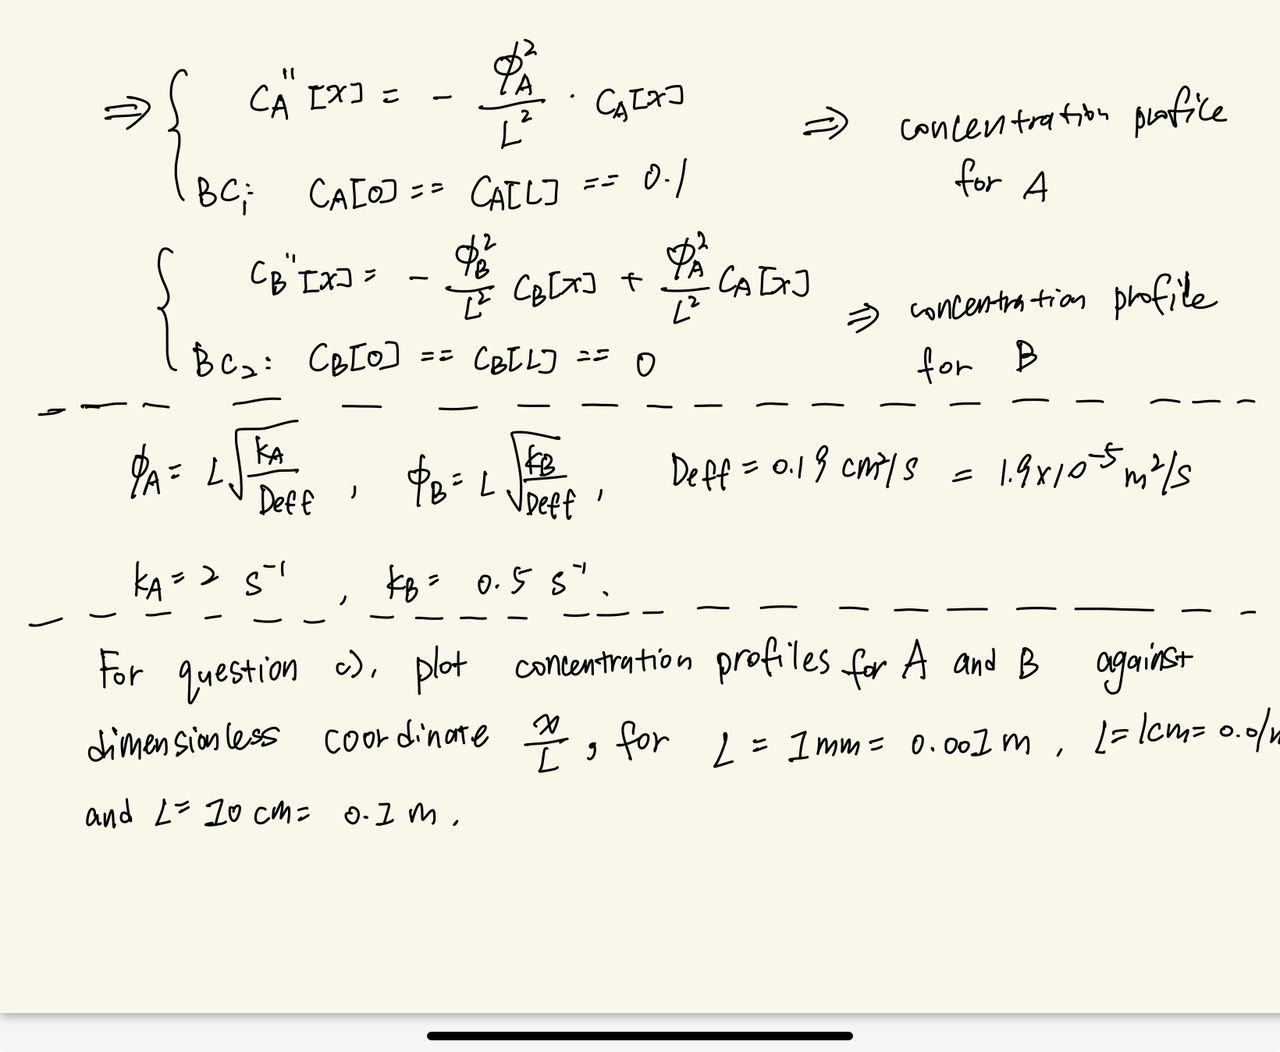 ⇒ { C_A''[x] = - ϕ_A²/L² · C_A[x] ⇒ concentration profile for A
BC₁: C_A[0] == C_A[L] == 0.1
{ C_B''[x] = - ϕ_B²/L² C_B[x] + ϕ_A²/L² C_A[x] ⇒ concentration profile for B
BC₂: C_B[0] == C_B[L] == 0
ϕ_A = L√(k_A/Deff), ϕ_B = L√(k_B/Deff), Deff = 0.19 cm²/s = 1.9x10⁻⁵ m²/s
k_A = 2 s⁻¹, k_B = 0.5 s⁻¹.
For question c), plot concentration profiles for A and B against
dimensionless coordinate x/L, for L = 1mm = 0.001 m, L=1cm= 0.01
and L= 10 cm= 0.1 m.